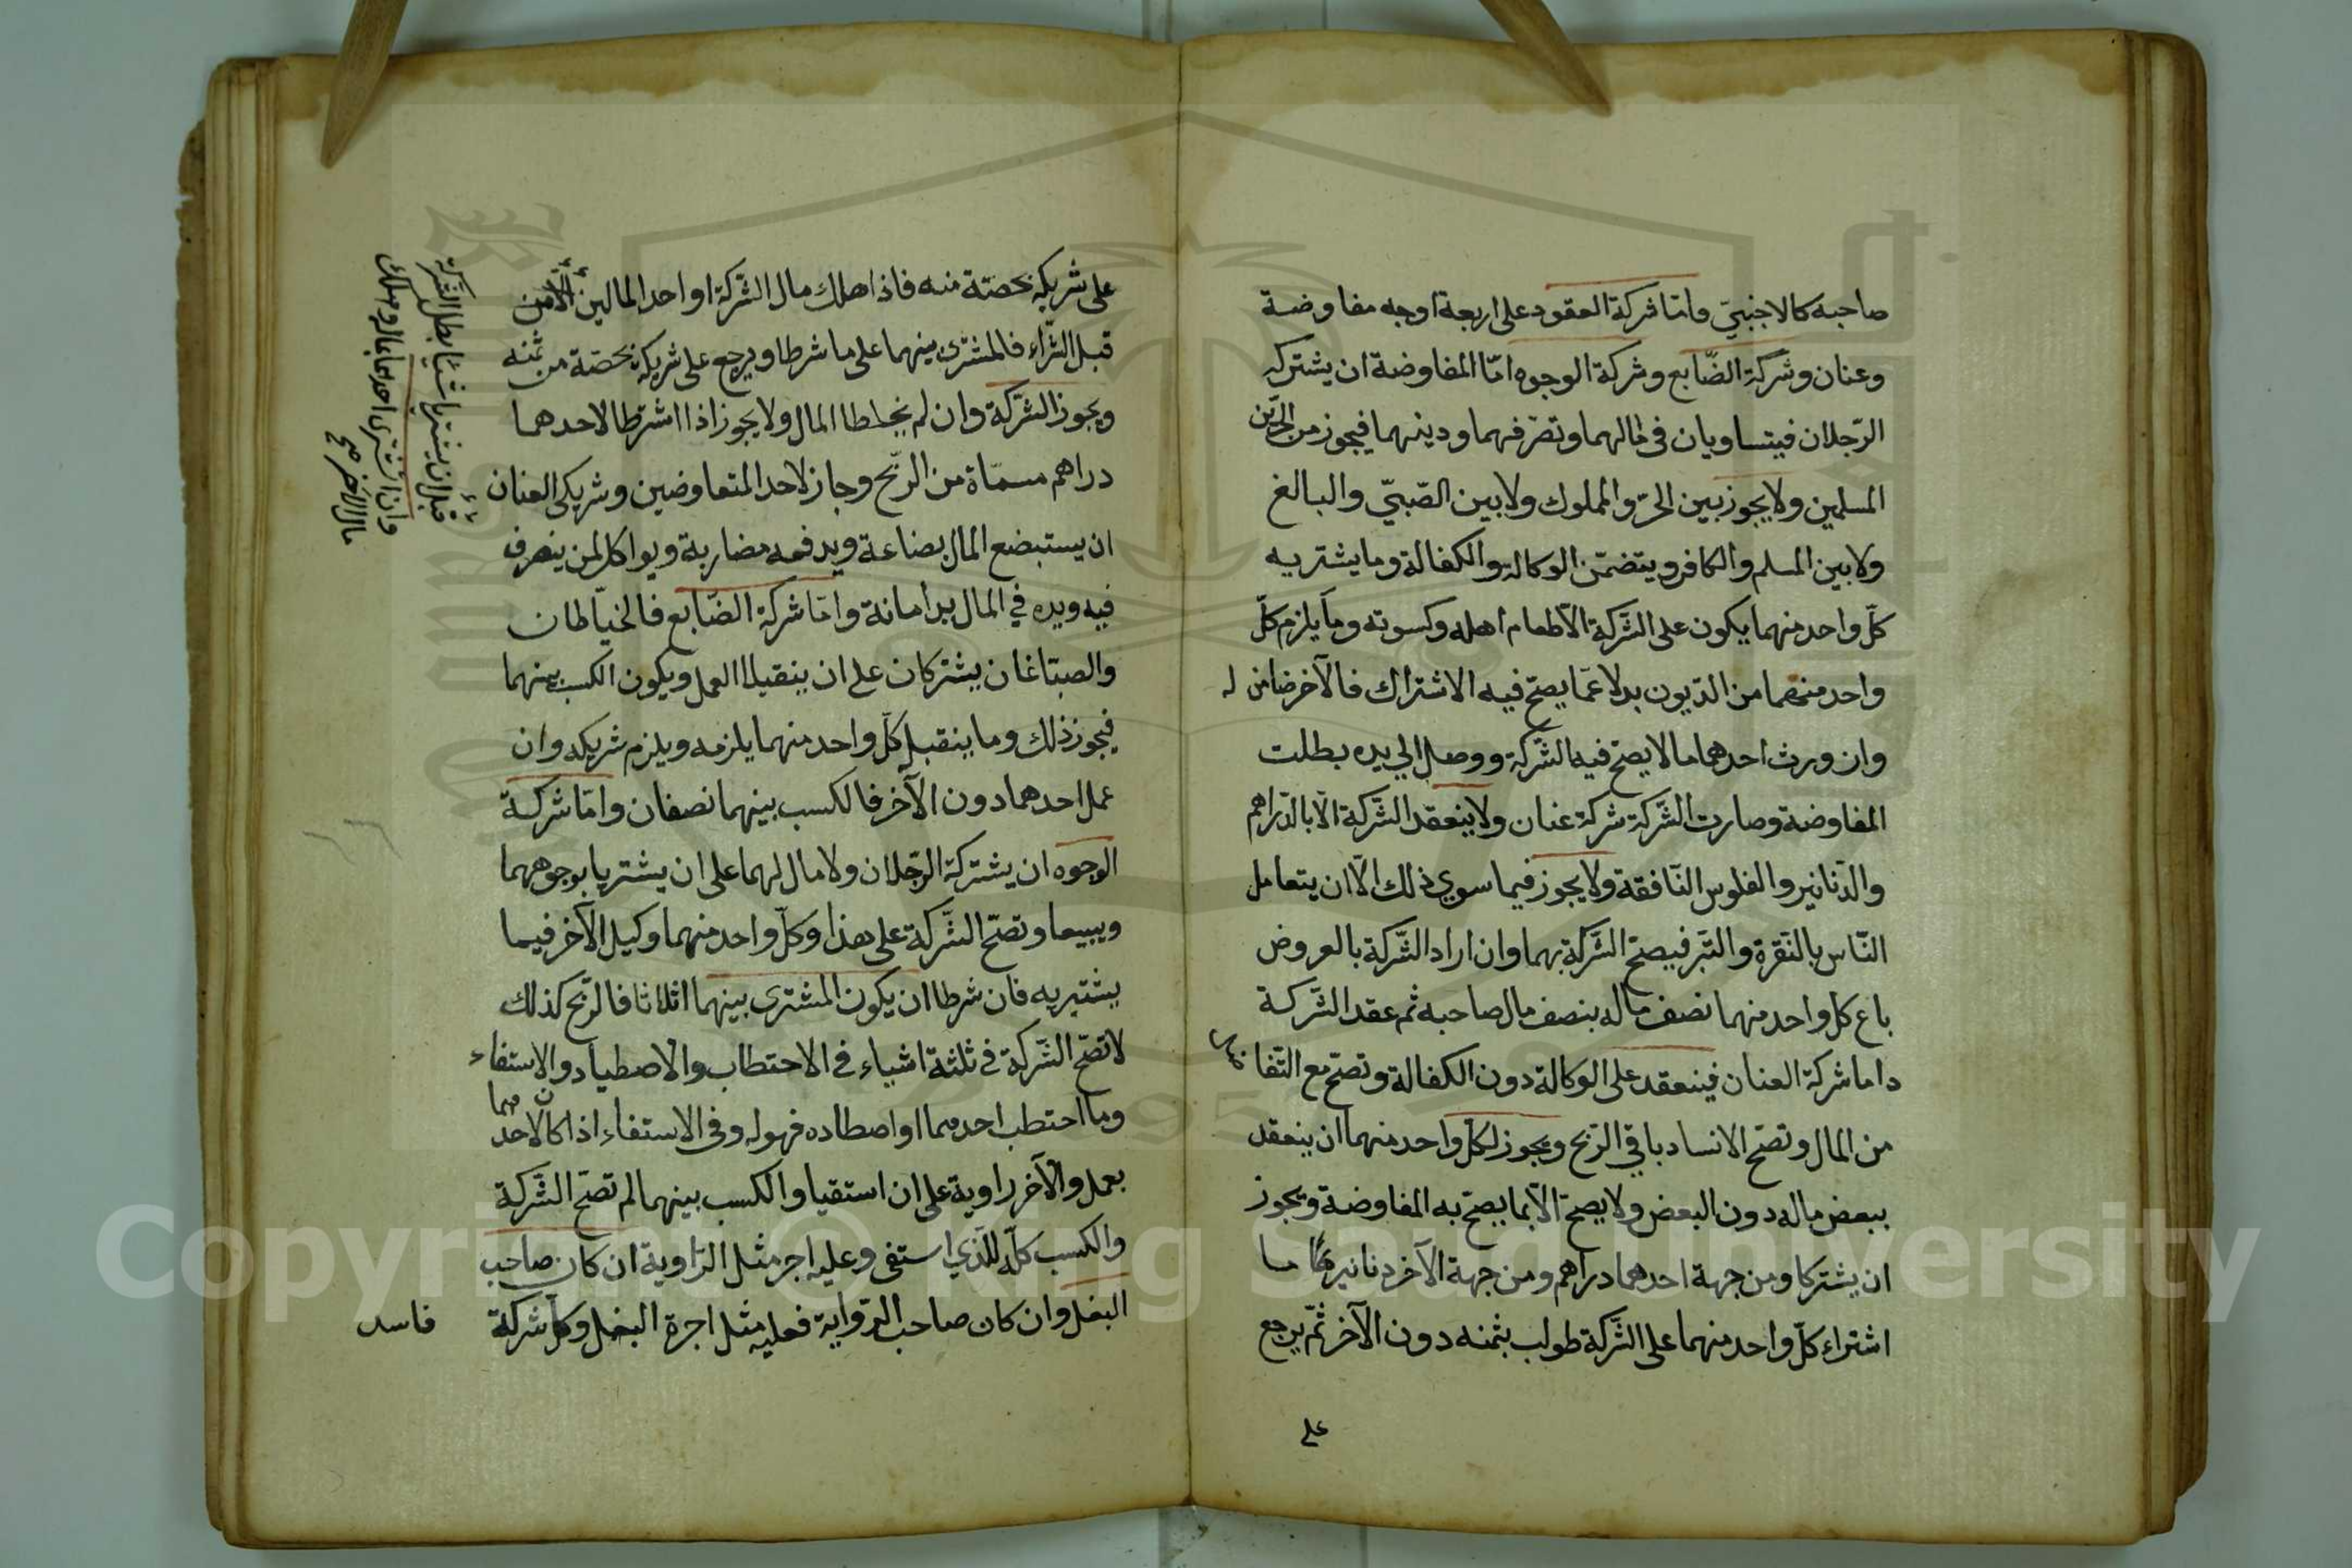 صاحبه كالاجنبيّ وامّا شركة العقود على اربعة اوجه مفاوضة
وعنان وشركة الضّايع وشركة الوجوه امّا المفاوضة ان يشتركه
الرّجلان فيتساويان فى مالهما وتصرّفهما ودينهما فيجوز من الحرّين
المسلمين ولا يجوز بين الحرّ والمملوك ولا بين الصّبيّ والبالغ
ولا بين المسلم والكافر ويتضمّن الوكالة والكفالة وما يشتريه
كلّ واحد منهما يكون على الشّركة الّا طعام اهله وكسوته وما يلزم كلّ
واحد منهما من الدّيون بدلا عمّا يصحّ فيه الاشتراك فالآخر ضامن له
وان ورث احدهما ما لا يصحّ فيه الشّركة ووصل الى يده بطلت
المفاوضة وصارت الشّركة شركة عنان ولا ينعقد الشّركة الّا بالدّراهم
والدّنانير والفلوس النّافقة ولا يجوز فيما سوي ذلك الّا ان يتعامل
النّاس بالنّقرة والتّبر فيصحّ الشّركة بهما وان اراد الشّركة بالعروض
باع كل واحد منهما نصف ماله بنصف مال صاحبه ثم عقد الشّركة
داما شركة العنان فينعقد على الوكالة دون الكفالة وتصحّ مع التّفاضل
من المال وتصحّ الانساد باقي الرّبح ويجوز لكلّ واحد منهما ان ينعقد
ببعض ماله دون البعض ولا يصحّ الّا بما يصحّ به المفاوضة ويجوز
ان يشتركا ومن جهة احدهما دراهم ومن جهة الآخر دنانير وما
اشتراء كلّ واحد منهما على الشّركة طولب بثمنه دون الآخر ثمّ يرجع
على
على شريكه بحصّته منه فاذا هلك مال الشّركة او احد المالين
قبل الشّراء فالمشترى بينهما على ما شرطا ويرجع على شريكه بحصّة من ثمنه
ويجوز الشّركة وان لم يخلطا المال ولا يجوز اذا اشرطا لاحدهما
دراهم مسمّاة من الرّبح وجاز لاحد المتعاوضين وشريكى العنان
ان يستبضع المال بضاعة ويدفعه مضاربة ويواكل لمن ينصرف
فيه ويده في المال يد امانة وامّا شركة الضّايع فالخيّاطان
والصبتاغان يشتركان على ان ينقبلا العمل ويكون الكسب بينهما
فيجوز ذلك وما ينقبل كلّ واحد منهما يلزمه ويلزم شريكه وان
عمل احدهما دون الآخر فالكسب بينهما نصفان وامّا شركة
الوجوه ان يشتركة الرّجلان ولا مال لهما على ان يشتريا بوجوههما
ويبيعا وتصحّ الشّركة على هذا وكلّ واحد منهما وكيل الآخر فيما
يشتيريه فان شرطا ان يكون المشترى بينهما اثلاثا فالرّبح كذلك
لا تصحّ الشّركة فى ثلثة اشياء فى الاحتطاب والاصطياد والاستفاء
وما احتطب احدهما او اصطاده فهو له وفى الاستفاء اذا كان لاحدهما
بعمل والآخر راوية على ان استقيا والكسب بينهما لم تصحّ الشّركة
والكسب كلّه للّذي استفى وعليه اجر مثل الرّاوية ان كان صاحب
البغل وان كان صاحب الرّواية فعليه مثل اجرة البغل وكلّ شركة
فاسد
قبل ان يشتريا شيئا بطل الشّركة
وان اشترى احدهما بماله وهلك
مال الآخر صح
Copyright © King Saud University